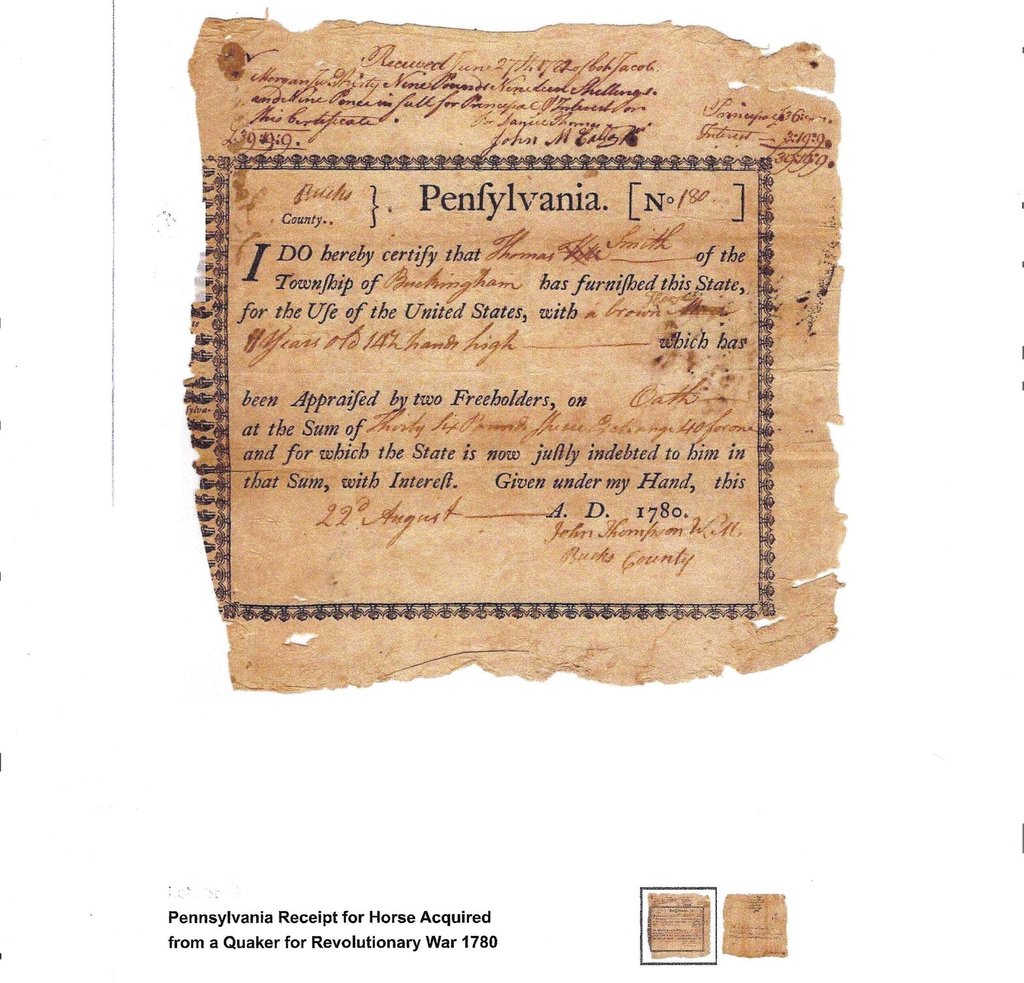 Received June 27th 1782 of Col Jacob
Morgan Junr Thirty Nine Pounds Nineteen Shillings
and Nine Pence in full for Principal & Interest for
this Certificate. For James Thomas
£39.19.9. John M
Principal 36
Interest — 3:19:9
39:19:9
Bucks
County.. }. Penſylvania. [No 180. ]
I DO hereby certify that Thomas Smith of the
Townſhip of Buckingham has furniſhed this State,
for the Uſe of the United States, with a brown Horse
11 Years old 14½ hands high which has
been Appraiſed by two Freeholders, on Oath
at the Sum of Thirty Six Pounds Exchange 40 for one
and for which the State is now juſtly indebted to him in
that Sum, with Intereſt. Given under my Hand, this
22d August A. D. 1780.
John Thompson W.M.
Bucks County
Pennsylvania Receipt for Horse Acquired
from a Quaker for Revolutionary War 1780